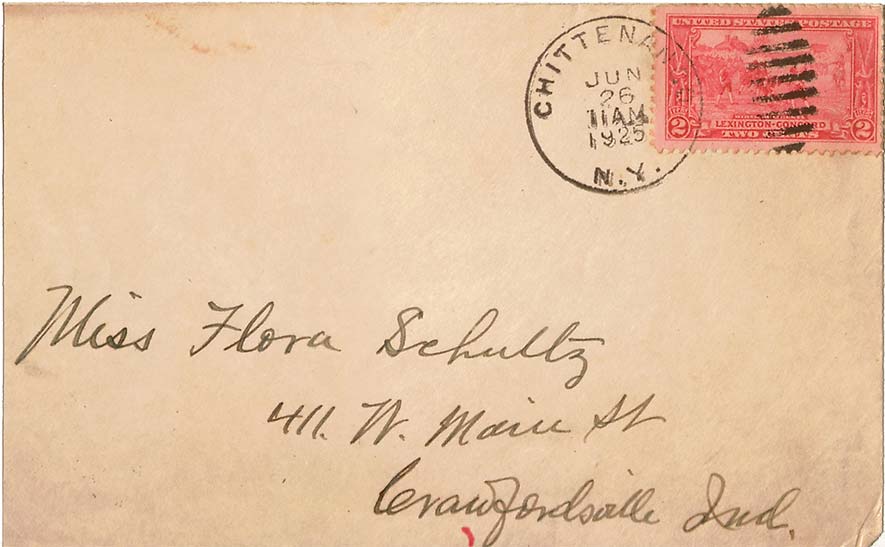 CHITTENAN
JUN
26
11AM
1925
N.Y.
UNITED STATES POSTAGE
LEXINGTON-CONCORD
2 TWO CENTS 2
Miss Flora Schultz
411. W. Main St
Crawfordsville Ind.